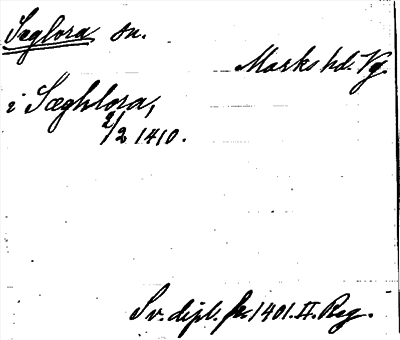 Sæglora sn.
Marks hd. Vg.
i Sæghlora,
2/2 1410.
Sv. dipl. fr. 1401. II. Reg.